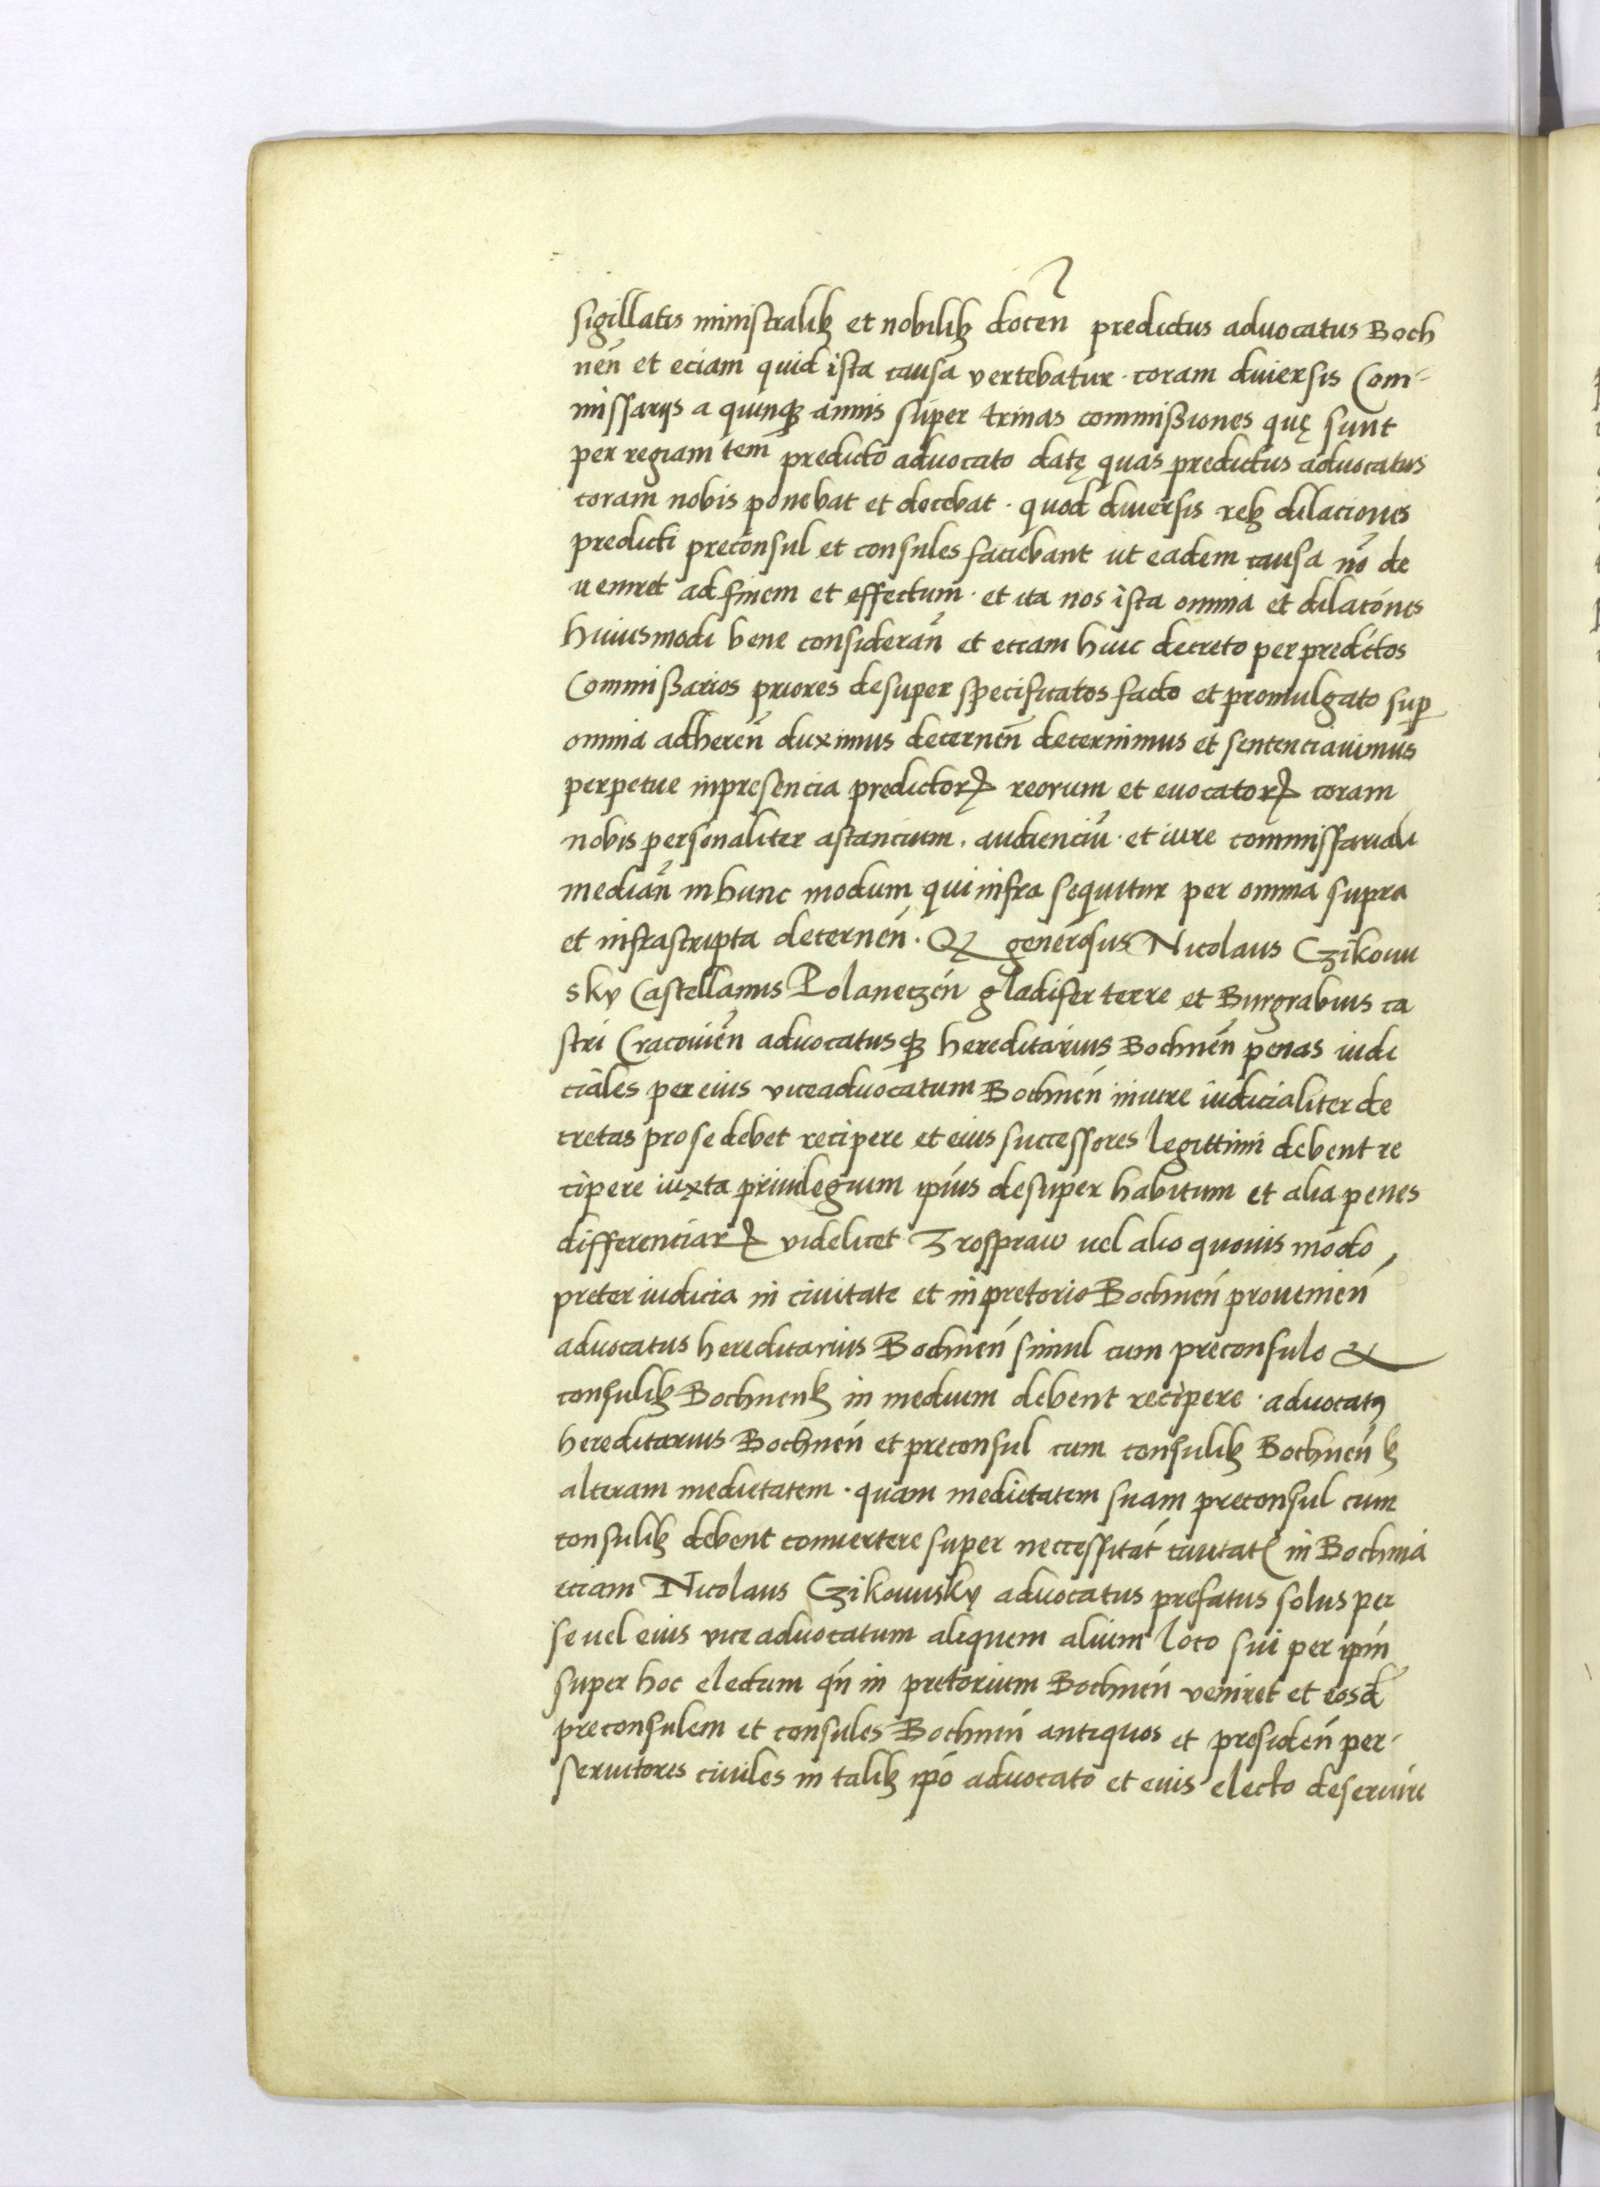 sigillatis ministralibꝫ et nobilibꝫ docen̄ predictus aduocatus Boch
nen̄ et eciam quid ista causa vertebatur · coram diuersis Com-
missarijs a quinqꝫ annis super trinas commissiones quę sunt
per regiam tem̄ predicto aduocato datę quas predictus aduocatus
coram nobis ponebat et docebat · quod diuersis rebꝫ dilaciones
predicti preconsul et consules faciebant ut eadem causa nō de
ueniret ad finem et effectum · et ita nos ista omnia et dilacōnes
huiusmodi bene consideran̄ et eciam huic decreto per predictos
Commissarios priores desuper specificatos facto et promulgato sup̱
omnia adheren̄ duximus decernen̄ decernimus et sentenciauimus
perpetue in presencia predictorꝝ reorum et euocatorꝝ coram
nobis personaliter astancium · audienciū · et iure commissariali
median̄ in hunc modum qui infra sequitur per omnia supra
et infrascripta decernen̄ · Qꝫ generosus Nicolaus Czikouu
sky Castellanus Polaneczen̄ gladifer terre et Burgrabius ca
stri Cracouien̄ aduocatusqꝫ hereditarius Bochnen̄ penas iudi
ciales per eius viceaduocatum Bochnen̄ in iure iudicialiter de
cretas pro se debet recipere et eius successores legittimi debent re
cipere iuxta priuilegium ip̄ius desuper habitum et alia penes
differenciarꝝ videlicet Z rosprauu uel alio quouis modo,
preter iudicia in ciuitate et in pretorio Bochnen̄ prouenien̄
aduocatus hereditarius Bochnen̄ simul cum preconsule &
consulibꝫ Bochnenbꝫ in medium debent recipere · aduocatꝰ
hereditarius Bochnen̄ et preconsul cum consulibꝫ Bochnen̄bꝫ
alteram medietatem · quam medietatem suam preconsul cum
consulibꝫ debent conuertere super neccessitat̄ ciuitatꝭ in Bochnia
eciam Nicolaus Czikouusky aduocatus prefatus solus per
se uel eius viceaduocatum aliquem alium loco sui per ip̄m
super hoc electum qn̄ in pretorium Bochnen̄ veniret et eosd̄
preconsulem et consules Bochnen̄ antiquos et presiden̄ per-
seruitores ciuiles in talibꝫ ip̄o aduocato et euis electo deseruire